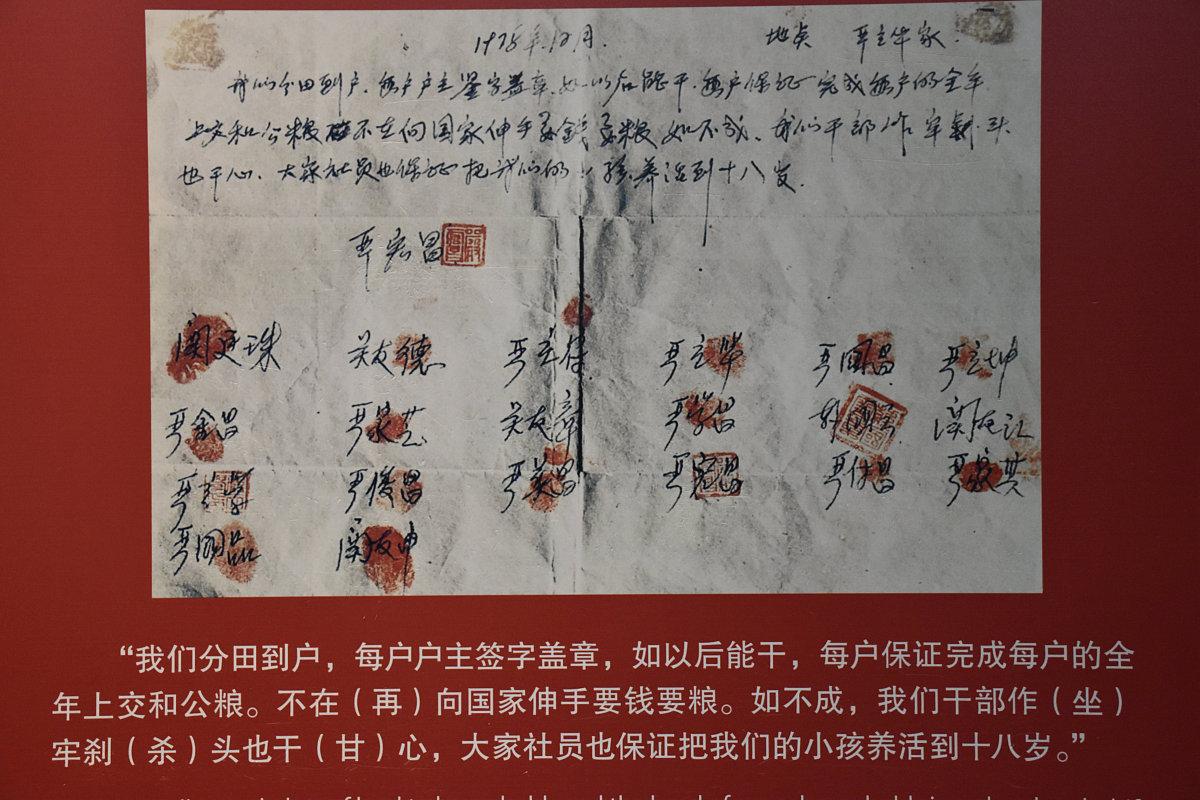 1978年.12月. 地点 严立华家.
我们分田到户.每户户主签字盖章.如以后能干.每户保证完成每户的全年
上交和公粮 不在向国家伸手要钱要粮 如不成.我们干部作牢刹头
也干心.大家社员也保证把我们的小孩养活到十八岁.
严宏昌
関廷珠 关友德 严立符 严立华 严国昌 严立坤
严金昌 严家芝 关友章 严学昌 韩国云 関友江
严立学 严俊昌 严美昌 严宏昌 严付昌 严家其
严国品 関友申
“我们分田到户，每户户主签字盖章，如以后能干，每户保证完成每户的全
年上交和公粮。不在（再）向国家伸手要钱要粮。如不成，我们干部作（坐）
牢刹（杀）头也干（甘）心，大家社员也保证把我们的小孩养活到十八岁。”